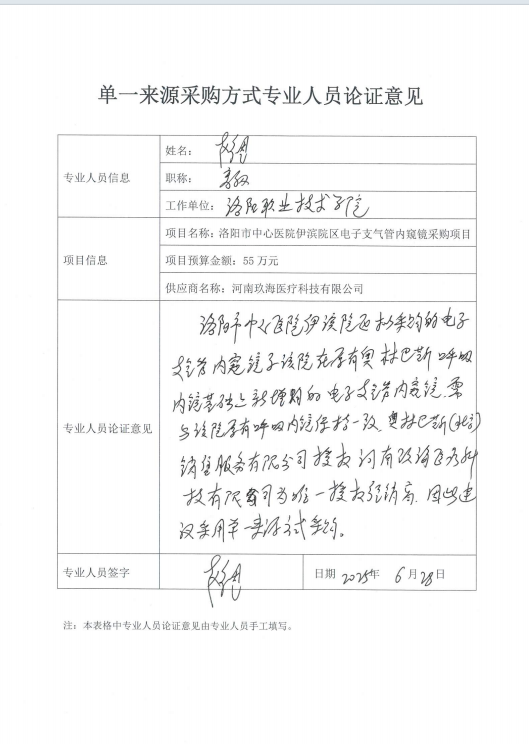 单一来源采购方式专业人员论证意见
专业人员信息
姓名：
职称：教授
工作单位：洛阳职业技术学院
项目信息
项目名称：洛阳市中心医院伊滨院区电子支气管内窥镜采购项目
项目预算金额：55 万元
供应商名称：河南玖海医疗科技有限公司
专业人员论证意见
洛阳市中心医院伊滨院区拟采购的电子
支气管内窥镜系该院在原有奥林巴斯呼吸
内镜基础上新增购的电子支气管内窥镜，需
与该院原有呼吸内镜保持一致，奥林巴斯（北京）
销售服务有限公司授权河南玖海医疗科
技有限公司为唯一授权经销商，因此建
议采用单一来源方式采购。
专业人员签字
日期 2025年 6月28日
注：本表格中专业人员论证意见由专业人员手工填写。